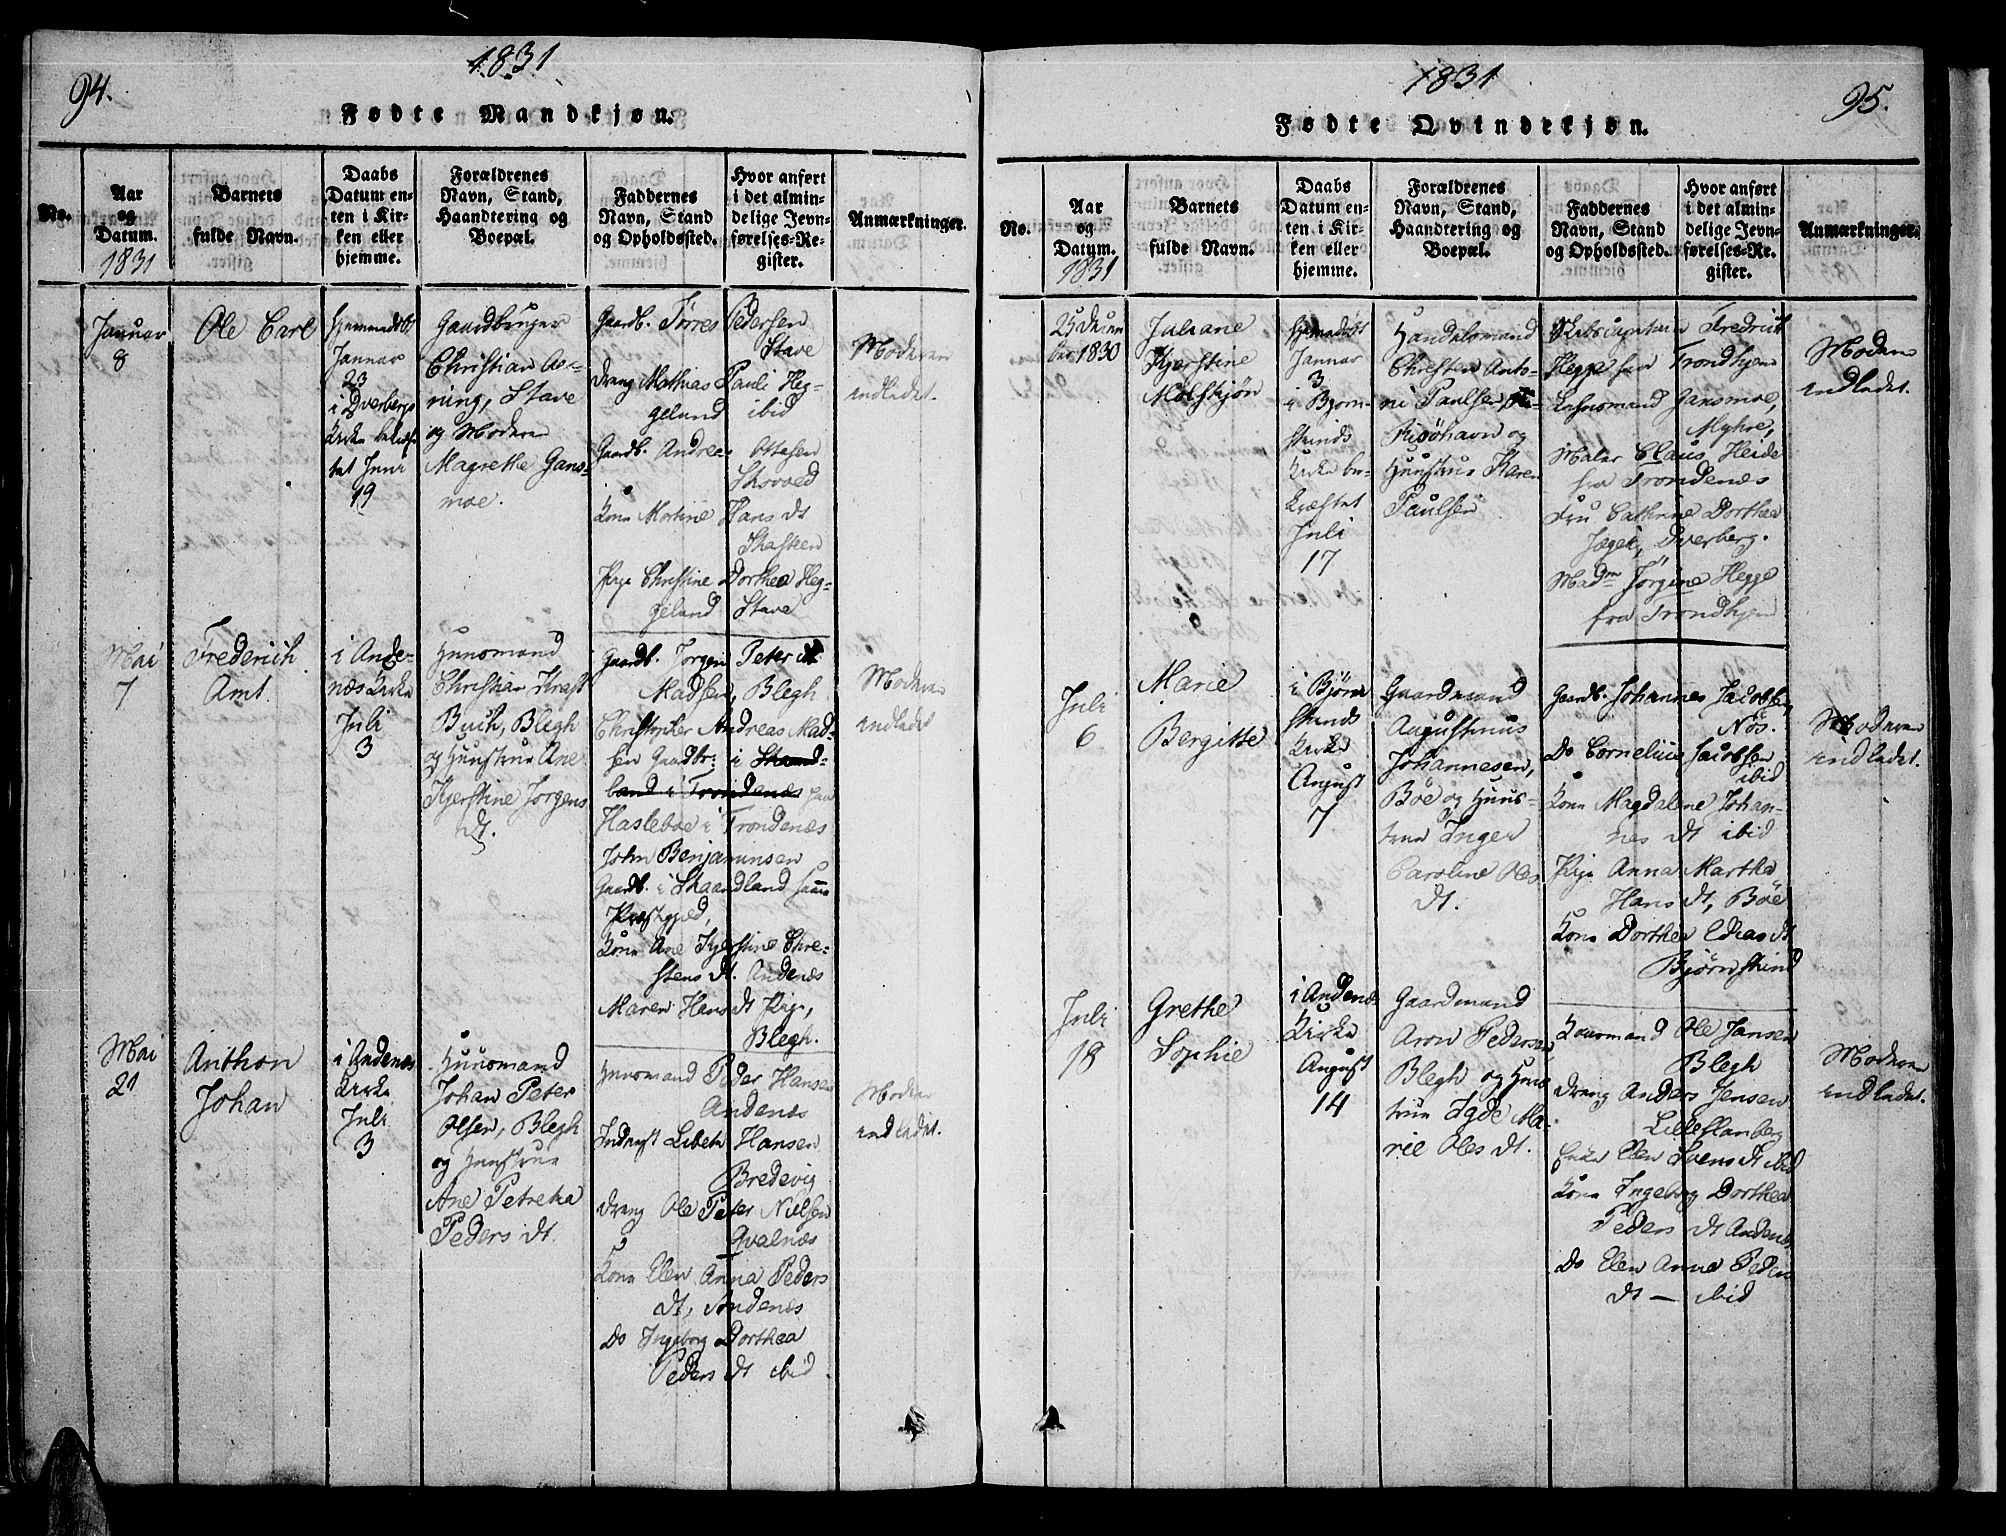 94.
1831
Fødte Mandkjøn.
No.
Aar
og
Datum.
1831
Barnets
fulde Navn.
Daabs
Datum en-
ten i Kir-
ken eller
hjemme.
Forældrenes
Navn, Stand,
Haandtering og
Boepæl.
Faddernes
Navn, Stand
og Opholdssted.
Hvor anført
i det almin-
delige Jevn-
førelses-Re-
gister.
Anmærkninger.
Januar
8
Ole Carl
Hjemmedøbt
Januar
23
i Dverbergs
Kirke
Juni
19
Gaardbruger
Christian
Stave
og Moderen
Magrethe Gans-
moe.
Gaardb. Tørres Pedersen
Stave
Dreng Mathias Pauli Heg-
geland ibid
Gaardb. Andreas Ottesen
Skoved
Kone Martine Hans dt
Skasteen
Pige Christine Dorthea Heg-
geland Stave
Moderen
indledet.
Mai
7
Frederich
Amt.
i Ande-
næs Kirke
Juli
3
Huusmand
Christian Krast
Buch, Blegh
og Huustrue Ane
Kjerstine Jørgens
dt.
Gaardb. Jørgen Peter
Madsen, Blegh
Christopher Andreas Mad-
sen Gaardbr: i Skaand-
land i Trondenæs
Hasleboe i Trondenæs
John Benjaminsen
Gaardb. i Skaandland samme
Præstegjed,
Kone Ane Kjerstine Chre-
stens dt. Andenæs
Maren Hans dt Pige,
Blegh.
Moderen
indledet
Mai
21
Anthon
Johan
i Andenæs
Kirke
Juli
3
Huusmand
Johan Peter
Olsen, Blegh
og Huustrue
Ane Petrecha
Peders dt.
Huusmand Peder Hansen
Andenæs
Inderst Hansen
Bredevig
Dreng Ole Peter Nielsen
Qvalnæs
Kone Elen Anna Peders
dt, Andenæs
Do Ingeborg Dorthea
Peders dt ibid.
Moderen
indledet.
1831
95.
Fødte Qvindekjøn.
No.
Aar
og
Datum.
1831
Barnets
fulde Navn.
Daabs
Datum en-
ten i Kir-
ken eller
hjemme.
Forældrenes
Navn, Stand,
Haandtering og
Boepæl.
Faddernes
Navn, Stand
og Opholdssted.
Hvor anført
i det almin-
delige Jevn-
førelses-Re-
gister.
Anmærkninger.
25 Decem
ber 1830
Juliane
Kjerstine
Mølskjøn
Hjemmedøbt
Januar
3
i Bjørn-
skinds
Kirke be-
kræftet
Juli
17
Handelsmand
Christen Anto-
ni Paulsen
Risøhavn og
Huustrue Karen
Paulsen
Fredrich
Hegge fra Trondhjem
Lehnsmand Gansmoe,
Myhre,
Maler Claus Heide
fra Trondenæs
Fru Cathrine Dorthea
Jæger, Dverberg.
Madm Jørgine Hegge
fra Trondhjem
Moderen
indledet.
Juli
6
Marie
Bergitte
i Bjørn
skinds
Kirke
August
7
Gaardmand
Augustinus
Johannesen,
Böe og Huus-
true Inger
Caroline Ols
dt.
Gaardb. Johannes Jacobsen
Nös.
Do Cornelius Jacobsen
ibid
Kone Magdalene Johan-
nes dt ibid
Pige Anna Martha
Hans dt, Böe
Kone Dorthea Elias dt
Bjørnskind
Moderen
indledet.
Juli
18
Grethe
Sophie
i Andenæs
Kirke
August
14
Gaardmand
Aron Pedersen
Blegh og Huus
true Igde Ma-
rie Oles dt.
Ole Jansen
Blegh
Dreng Anders Jensen
Enke Elen Svens dt ibid
Kone Ingeborg Dorthea
Peders dt Andenæs
Do Elen Anne Peders
dt — ibid
Moderen
indledet.